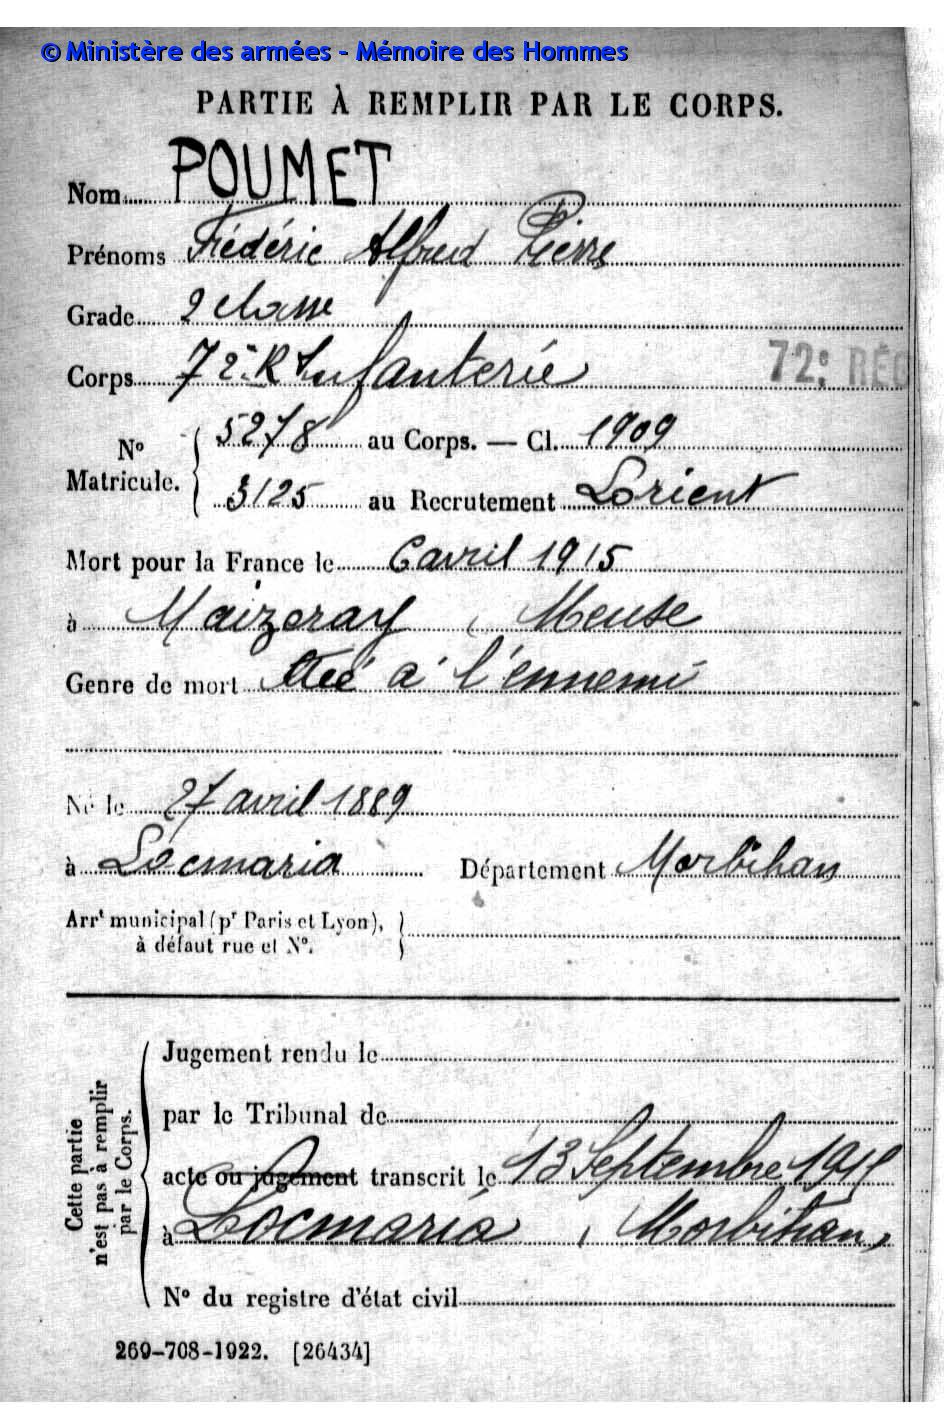 © Ministère des armées - Mémoire des Hommes
PARTIE À REMPLIR PAR LE CORPS.
Nom POUMET
Prénoms Frédéric Alfred Pierre
Grade 2 classe
Corps 72e R Infanterie 72e RÉG
No Matricule. { 5278 au Corps. — Cl. 1909
3125 au Recrutement Lorient
Mort pour la France le 6 avril 1915
à Maizeray, Meuse
Genre de mort tué à l'ennemi
Né le 27 avril 1889
à Locmaria Département Morbihan
Arrt municipal (pr Paris et Lyon), }
à défaut rue et No.
Cette partie
n'est pas à remplir
par le Corps.
Jugement rendu le
par le Tribunal de
acte ou jugement transcrit le 13 Septembre 1915
à Locmaria, Morbihan,
No du registre d'état civil
269-708-1922. [26434]